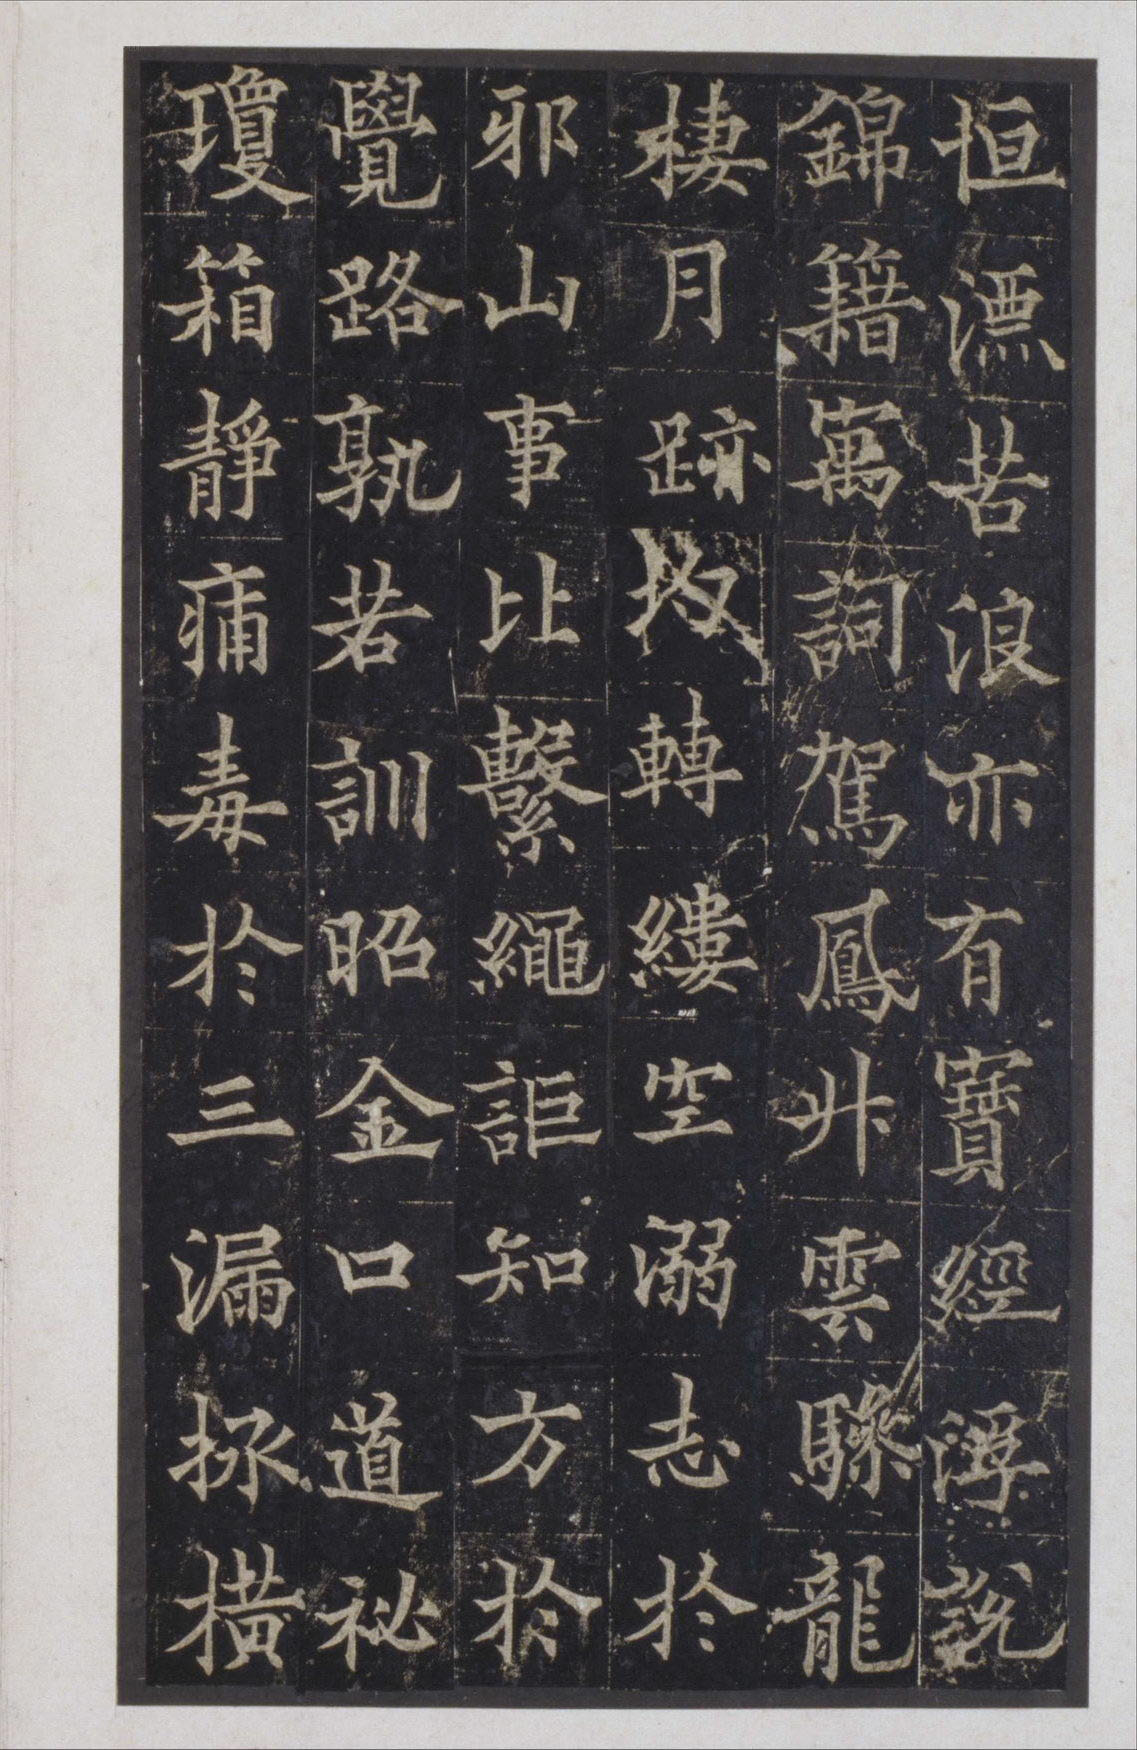 恒漂苦浪亦有寶經浮說
錦籍萬詞駕鳳升雲驂龍
棲月跡均轉縷空溺志於
邪山事比繫繩詎知方於
覺路孰若訓昭金口道祕
瓊箱靜痡毒於三漏拯橫